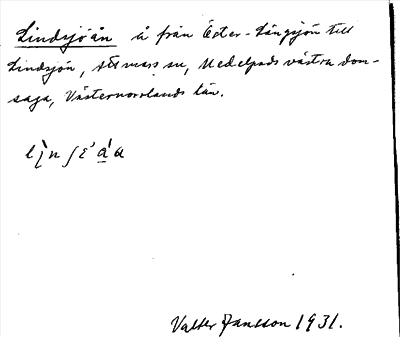 Lindsjöån å från Öster-Långsjön till
Lindsjön, sn, Medelpads västra dom-
saga, Västernorrlands län.
Valter Jansson 1931.